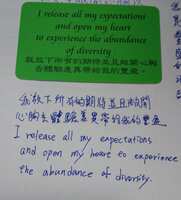 I release all my expectations
and open my heart
to experience the abundance
of diversity
我放下所有的期待並且敞開心胸
去體驗差異帶給我的豐盛
我放下所有的期待並且敞開
心胸去體驗差異帶給我的豐盛
I release all my expectations
and open my heart to experience
the abundance of diversity.